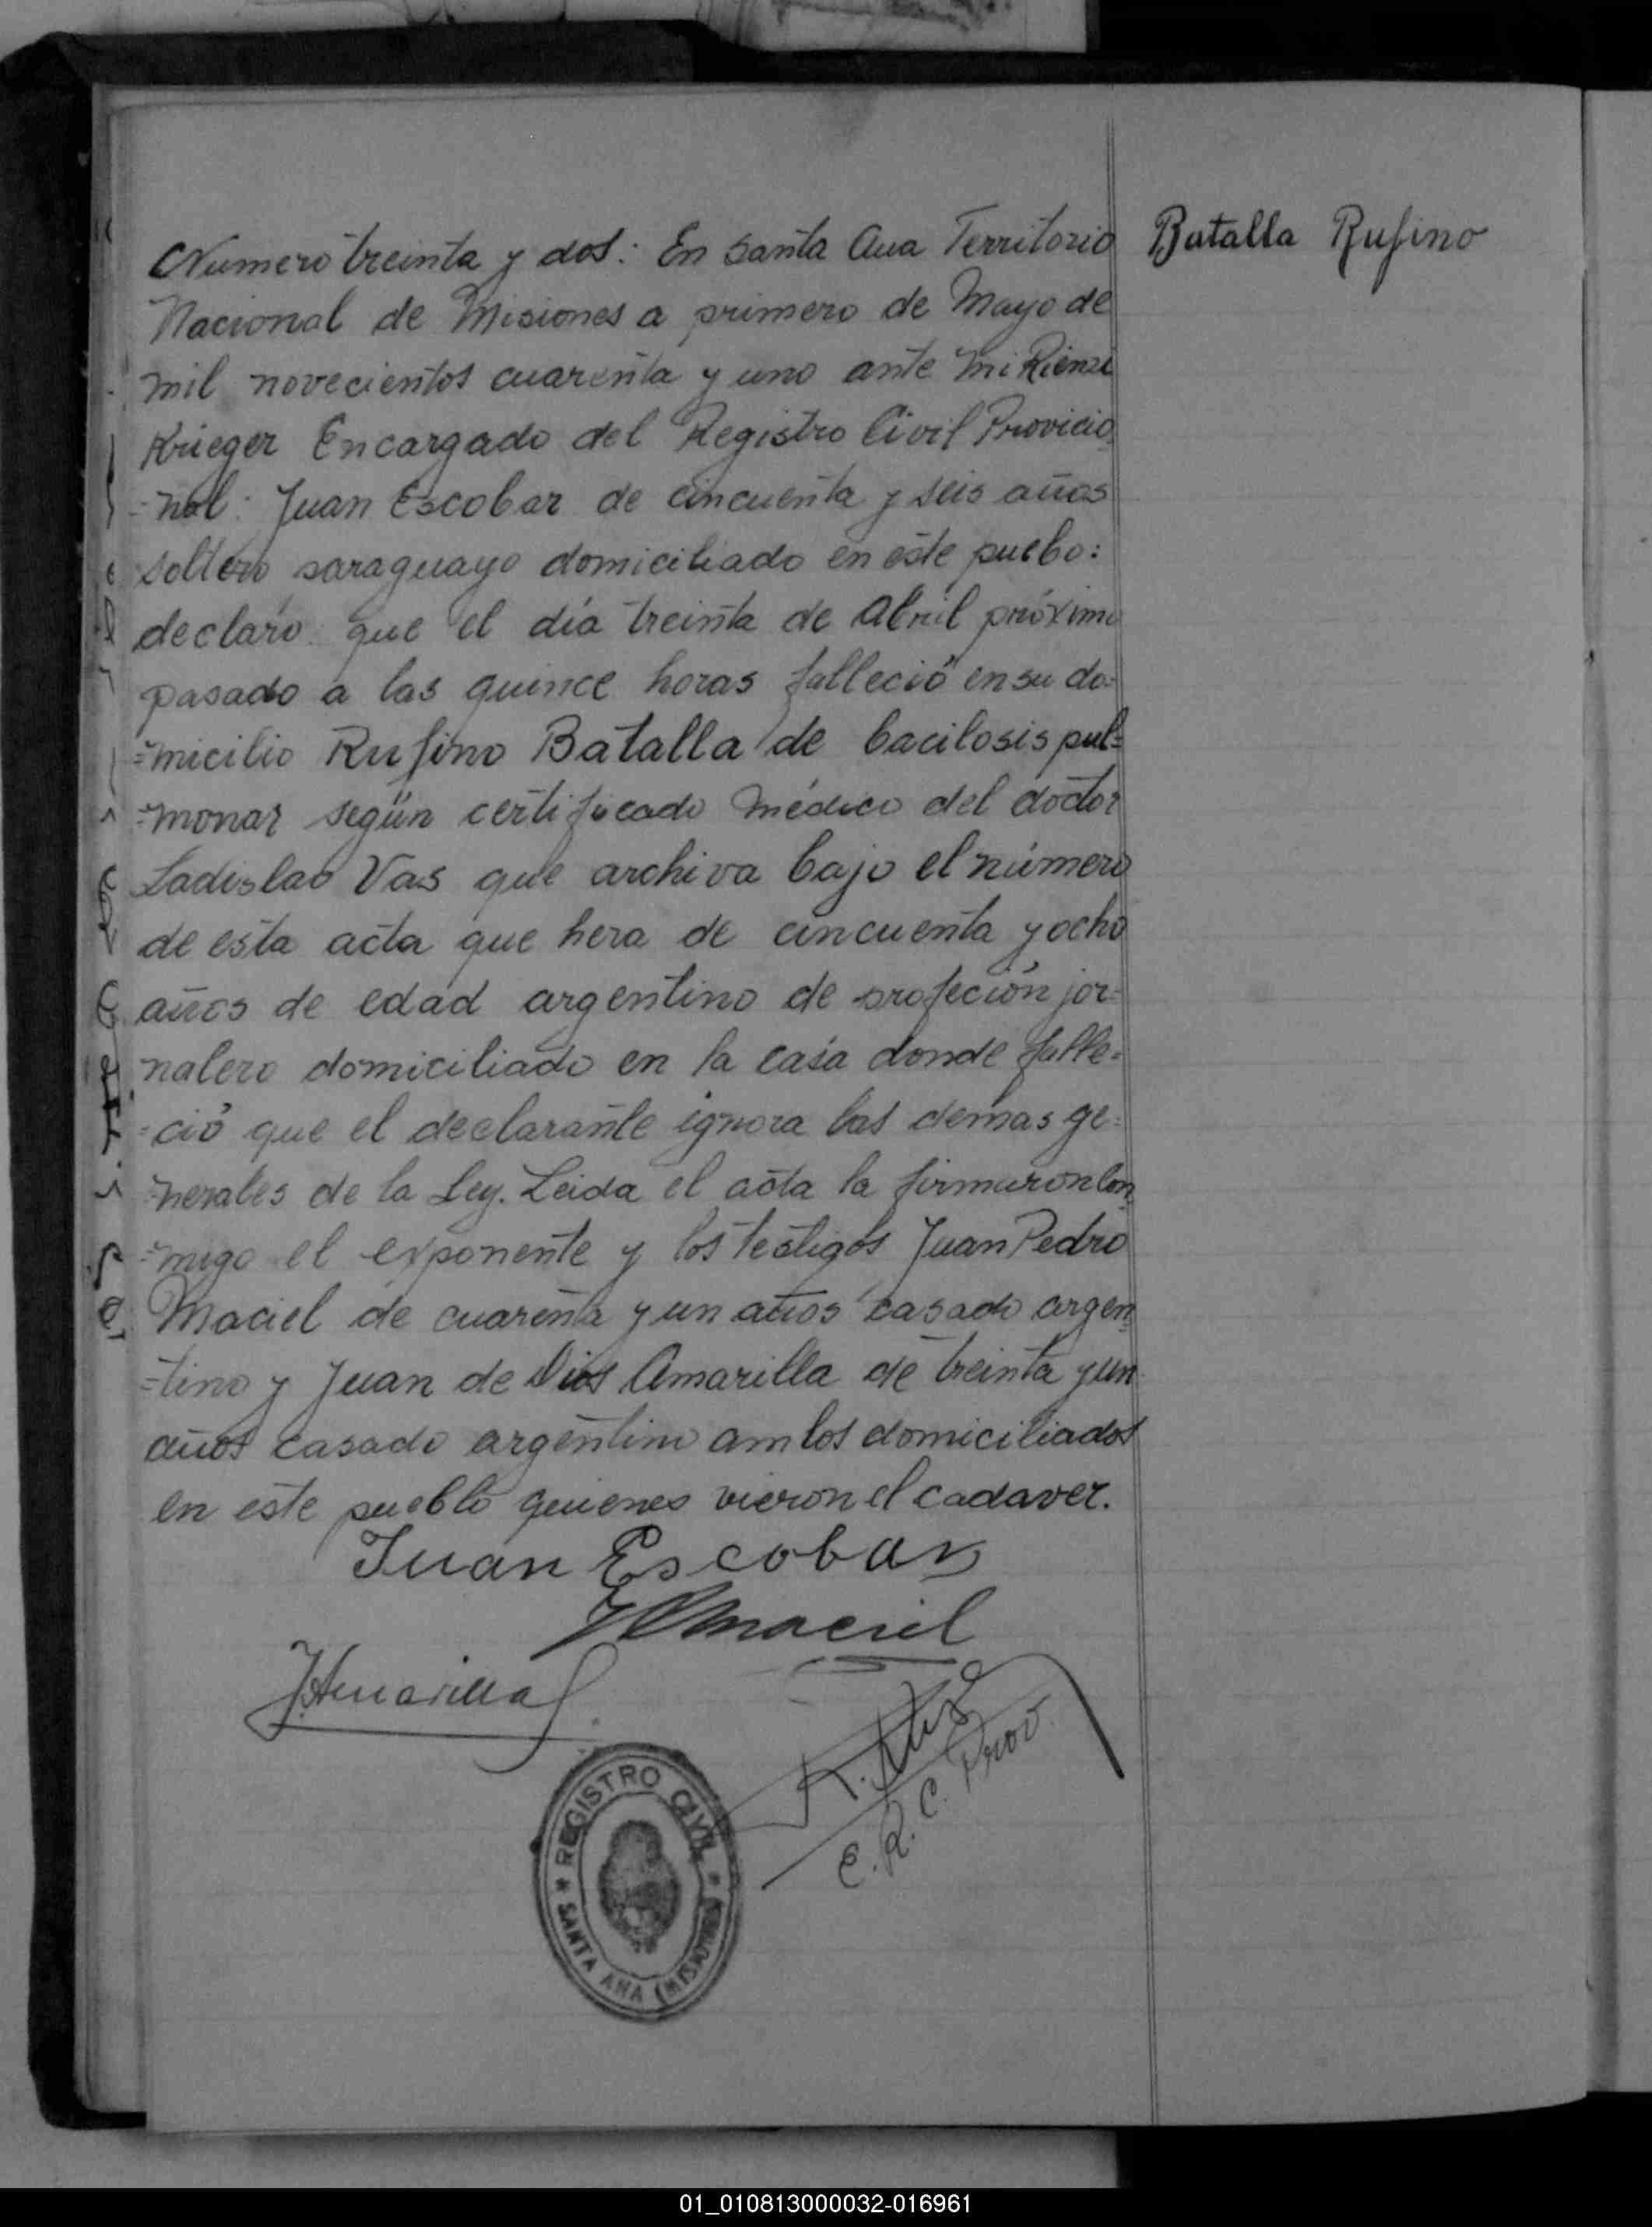 Batalla Rufino
Numero treinta y dos: En Santa Ana Territorio
Nacional de Misiones a primero de Mayo de
mil novecientos cuarenta y uno ante mi Rienzi
Krieger Encargado del Registro Civil Provicio
=nal: Juan Escobar de cincuenta y seis años
soltero paraguayo domiciliado en este puebo:
declaró: que el día treinta de Abril próximo
pasado a las quince horas falleció en su do=
=micilio Rufino Batalla de bacilosis pul=
=monar según certificado médico del doctor
Ladislao Vas que archiva bajo el número
de esta acta que hera de cincuenta y ocho
años de edad argentino de profeción jor=
nalero domiciliado en la casa donde falle=
=ció que el declarante ignora las demas ge=
nerales de la Ley. Leida el acta la firmaron con
=migo el exponente y los testigos Juan Pedro
Maciel de cuarenta y un años casado argen
=tino y Juan de Dios Amarilla de treinta y un
años casado argentino ambos domiciliados
en este pueblo quienes vieron el cadaver.
Juan Escobar
JPMaciel
J. Amarilla
E. R. C. Prov.
REGISTRO CIVIL
SANTA ANA (MISIONES)
01_010813000032-016961